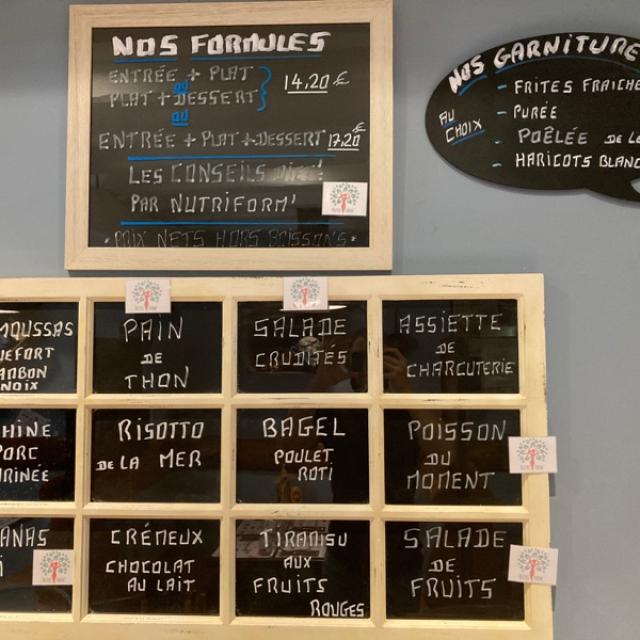 NOS FORMULES
ENTRÉE + PLAT
ou
PLAT + DESSERT
14,20 €
ou
ENTRÉE + PLAT + DESSERT 17,20 €
LES CONSEILS DIET!
PAR NUTRIFORM'
• PRIX NETS HORS BOISSONS •
NOS GARNITURE
AU
CHOIX
- FRITES FRAICHE
- PURÉE
- POÊLÉE DE
- HARICOTS BLANC
MOUSSAS
PAIN
DE
THON
SALADE
CRUDITÉS
ASSIETTE
DE
CHARCUTERIE
NOIX
RISOTTO
DE LA MER
BAGEL
POULET
ROTI
POISSON
DU
MOMENT
PORC
CRÉMEUX
CHOCOLAT
AU LAIT
TIRAMISU
AUX
FRUITS
ROUGES
SALADE
DE
FRUITS